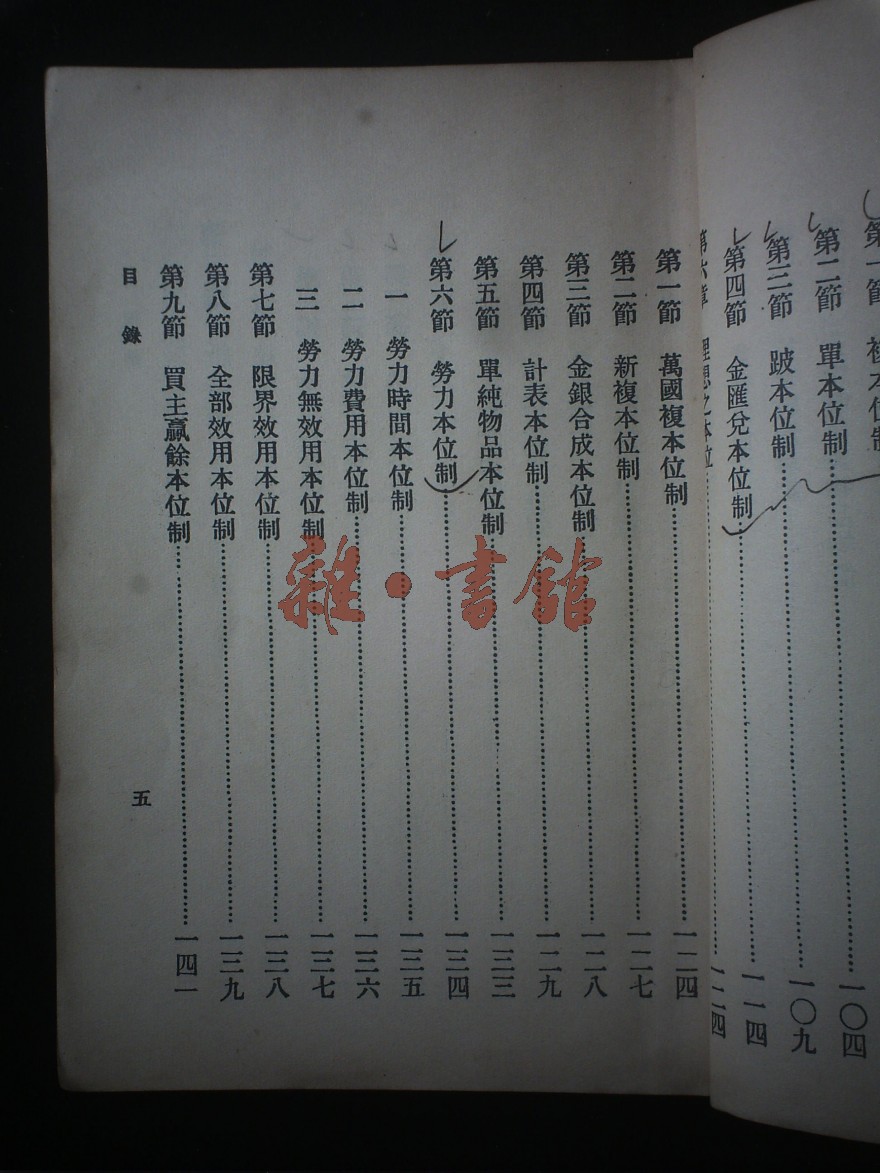 第一節 複本位制……一〇四
第二節 單本位制……一〇九
第三節 跛本位制……
第四節 金匯兌本位制……一一四
第六章 理想之本位……一二四
第一節 萬國複本位制……一二四
第二節 新複本位制……一二七
第三節 金銀合成本位制……一二八
第四節 計表本位制……一二九
第五節 單純物品本位制……一三三
第六節 勞力本位制……一三四
一 勞力時間本位制……一三五
二 勞力費用本位制……一三六
三 勞力無效用本位制……一三七
第七節 限界效用本位制……一三八
第八節 全部效用本位制……一三九
第九節 買主贏餘本位制……一四一
目錄
五
雜·書館